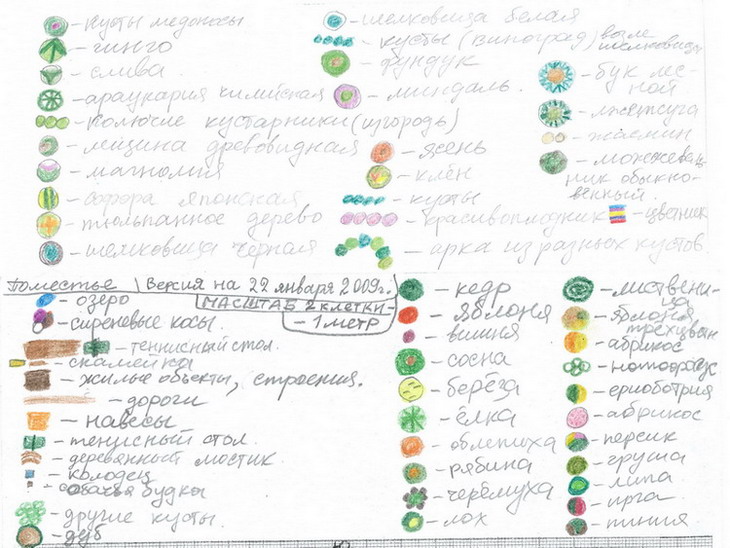 - кусты медоносы
- гинго
- слива
- араукария чилийская
- колючие кустарники (изгородь)
- лещина древовидная
- магнолия
- софора японская
- тюльпанное дерево
- шелковица чёрная
- шелковица белая
- кусты (виноград) возле шелковицы
- фундук
- миндаль.
- ясень
- клён
- кусты
- красивоплодник
- арка из разных кустов
- бук лес-
ной
- лжетсуга
- жасмин
- можжевель-
ник обыкно-
венный.
- цветник
Поместье | Версия на 22 января 2009г.
МАСШТАБ 2 КЛЕТКИ-
- 1 МЕТР
- озеро
- сиреневые косы.
- теннисный стол.
- скамейка
- жилые объекты, строения.
- дороги
- навесы
- теннисный стол.
- деревянный мостик.
- колодец
- собачья будка
- другие кусты.
- дуб
- кедр
- яблоня
- вишня
- сосна
- берёза
- ёлка
- облепиха
- рябина
- черёмуха
- лох
- листвени-
ца
- яблоня
- абрикос
- нотофагус
- эриоботрия
- абрикос
- персик
- груша
- липа
- ирга
- пиния